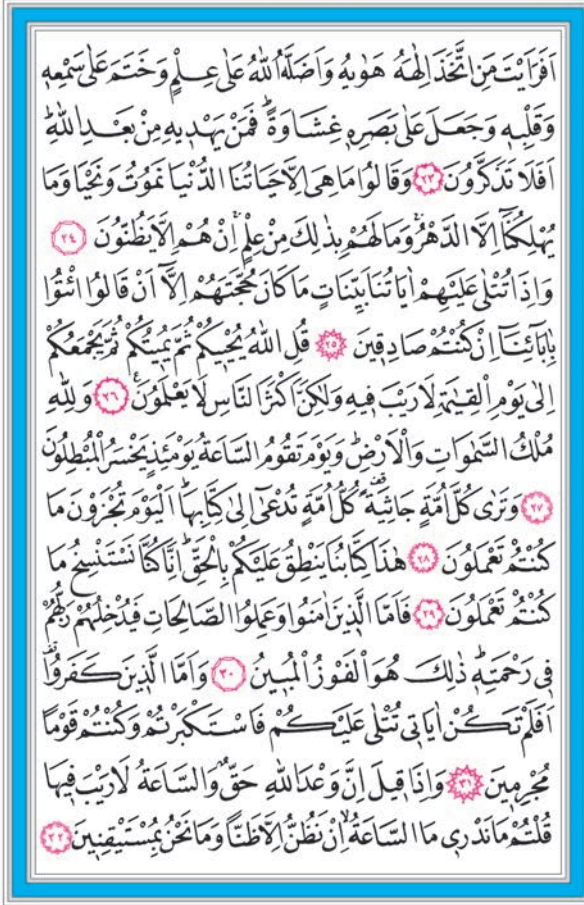 اَفَرَاَيْتَ مَنِ اتَّخَذَ اِلٰهَهُ هَوٰيهُ وَاَضَلَّهُ اللّٰهُ عَلٰى عِلْمٍ وَخَتَمَ عَلٰى سَمْعِه۪
وَقَلْبِه۪ وَجَعَلَ عَلٰى بَصَرِه۪ غِشَاوَةًۜ فَمَنْ يَهْد۪يهِ مِنْ بَعْدِ اللّٰهِۜ
اَفَلَا تَذَكَّرُونَ ﴿٢٣﴾ وَقَالُوا مَا هِيَ اِلَّا حَيَاتُنَا الدُّنْيَا نَمُوتُ وَنَحْيَا وَمَا
يُهْلِكُنَٓا اِلَّا الدَّهْرُۚ وَمَا لَهُمْ بِذٰلِكَ مِنْ عِلْمٍۚ اِنْ هُمْ اِلَّا يَظُنُّونَ ﴿٢٤﴾
وَاِذَا تُتْلٰى عَلَيْهِمْ اٰيَاتُنَا بَيِّنَاتٍ مَا كَانَ حُجَّتَهُمْ اِلَّٓا اَنْ قَالُوا ائْتُوا
بِاٰبَٓائِنَٓا اِنْ كُنْتُمْ صَادِق۪ينَ ﴿٢٥﴾ قُلِ اللّٰهُ يُحْي۪يكُمْ ثُمَّ يُم۪يتُكُمْ ثُمَّ يَجْمَعُكُمْ
اِلٰى يَوْمِ الْقِيٰمَةِ لَا رَيْبَ ف۪يهِ وَلٰكِنَّ اَكْثَرَ النَّاسِ لَا يَعْلَمُونَ۟ ﴿٢٦﴾ وَلِلّٰهِ
مُلْكُ السَّمٰوَاتِ وَالْاَرْضِۜ وَيَوْمَ تَقُومُ السَّاعَةُ يَوْمَئِذٍ يَخْسَرُ الْمُبْطِلُونَ
﴿٢٧﴾ وَتَرٰى كُلَّ اُمَّةٍ جَاثِيَةً۠ كُلُّ اُمَّةٍ تُدْعٰٓى اِلٰى كِتَابِهَاۜ اَلْيَوْمَ تُجْزَوْنَ مَا
كُنْتُمْ تَعْمَلُونَ ﴿٢٨﴾ هٰذَا كِتَابُنَا يَنْطِقُ عَلَيْكُمْ بِالْحَقِّۜ اِنَّا كُنَّا نَسْتَنْسِخُ مَا
كُنْتُمْ تَعْمَلُونَ ﴿٢٩﴾ فَاَمَّا الَّذ۪ينَ اٰمَنُوا وَعَمِلُوا الصَّالِحَاتِ فَيُدْخِلُهُمْ رَبُّهُمْ
ف۪ي رَحْمَتِه۪ۜ ذٰلِكَ هُوَ الْفَوْزُ الْمُب۪ينُ ﴿٣٠﴾ وَاَمَّا الَّذ۪ينَ كَفَرُوا۠
اَفَلَمْ تَكُنْ اٰيَات۪ي تُتْلٰى عَلَيْكُمْ فَاسْتَكْبَرْتُمْ وَكُنْتُمْ قَوْمًا
مُجْرِم۪ينَ ﴿٣١﴾ وَاِذَا ق۪يلَ اِنَّ وَعْدَ اللّٰهِ حَقٌّ وَالسَّاعَةُ لَا رَيْبَ ف۪يهَا
قُلْتُمْ مَا نَدْر۪ي مَا السَّاعَةُۙ اِنْ نَظُنُّ اِلَّا ظَنًّا وَمَا نَحْنُ بِمُسْتَيْقِن۪ينَ ﴿٣٢﴾